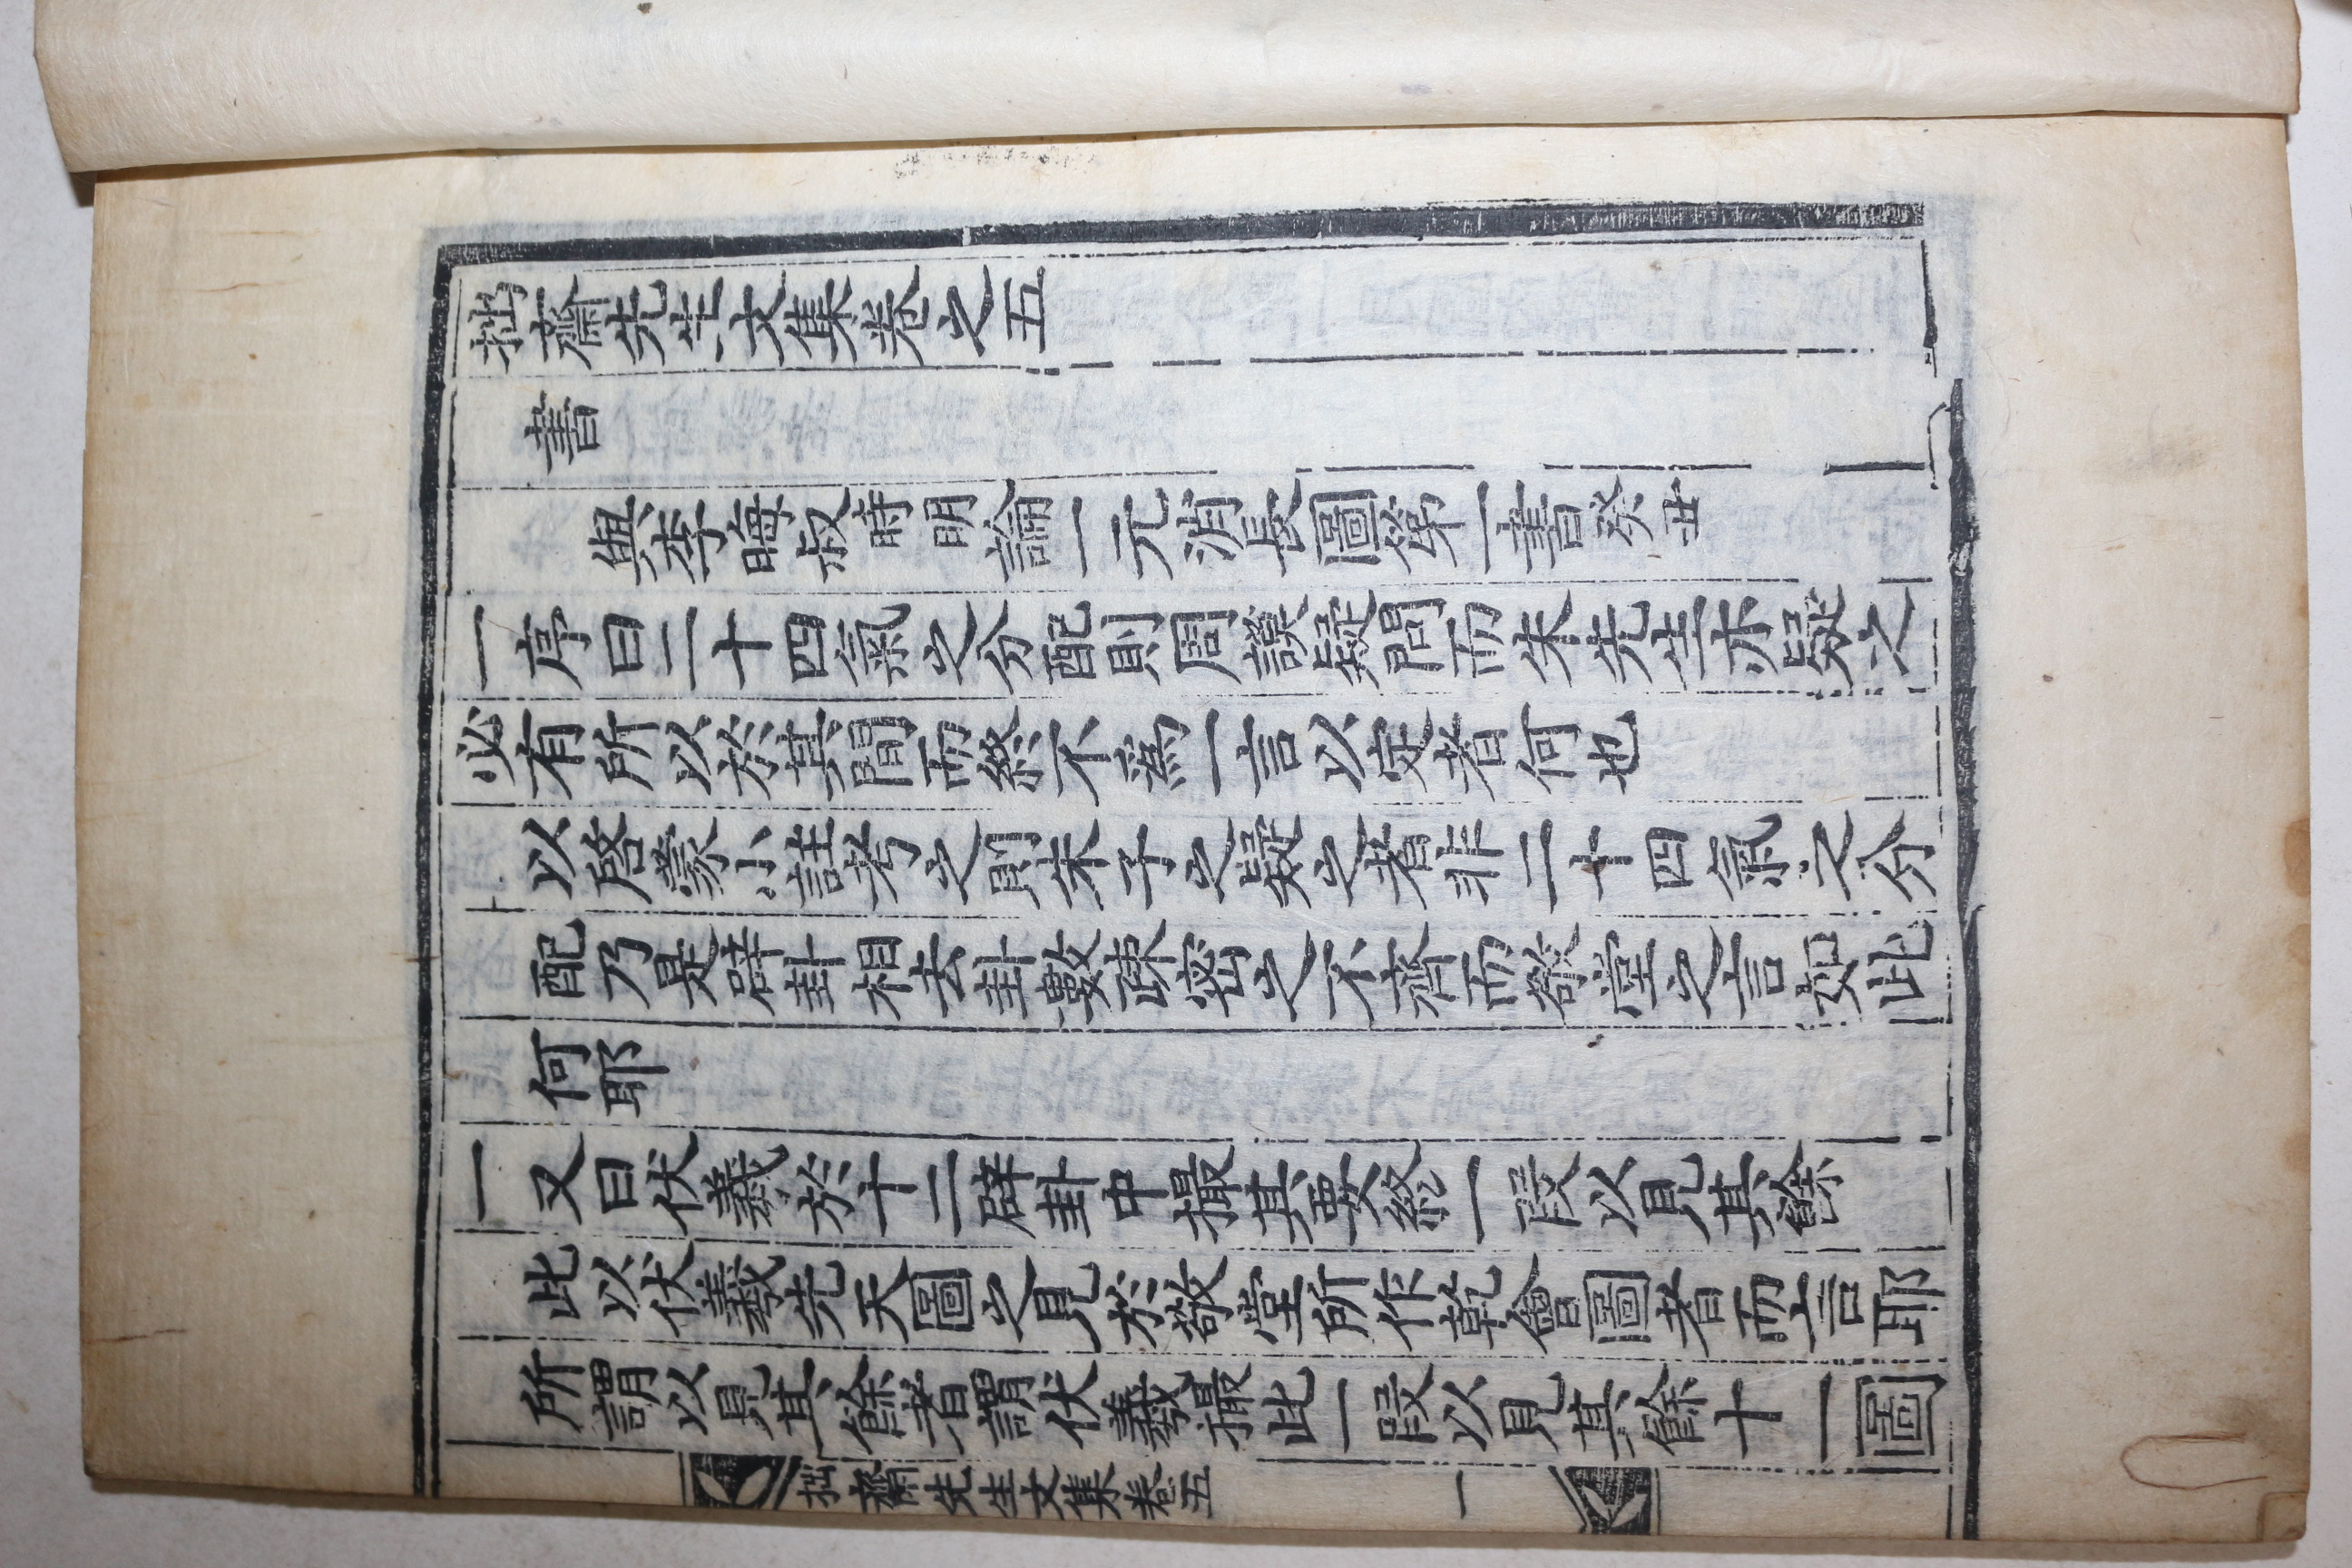 拙齋先生文集卷之五
書
與李疇叔時明論一元消長圖第一書癸丑
一序曰二十四氣之分配則周謨疑問而朱先生亦疑之
必有所以於其間而終不爲一言以定者何也
以啓蒙小註考之則朱子之疑之者非二十四氣之分
配乃是辟卦相去卦數疎密之不齊而敬堂之言如此
何耶
一又曰伏羲於十二辟卦中撮其要終一段以見其餘
此以伏羲先天圖之見於敬堂所作乾會圖者而言耶
所謂以見其餘者謂伏羲撮此一段以見其餘十一圖
拙齋先生文集卷五 一